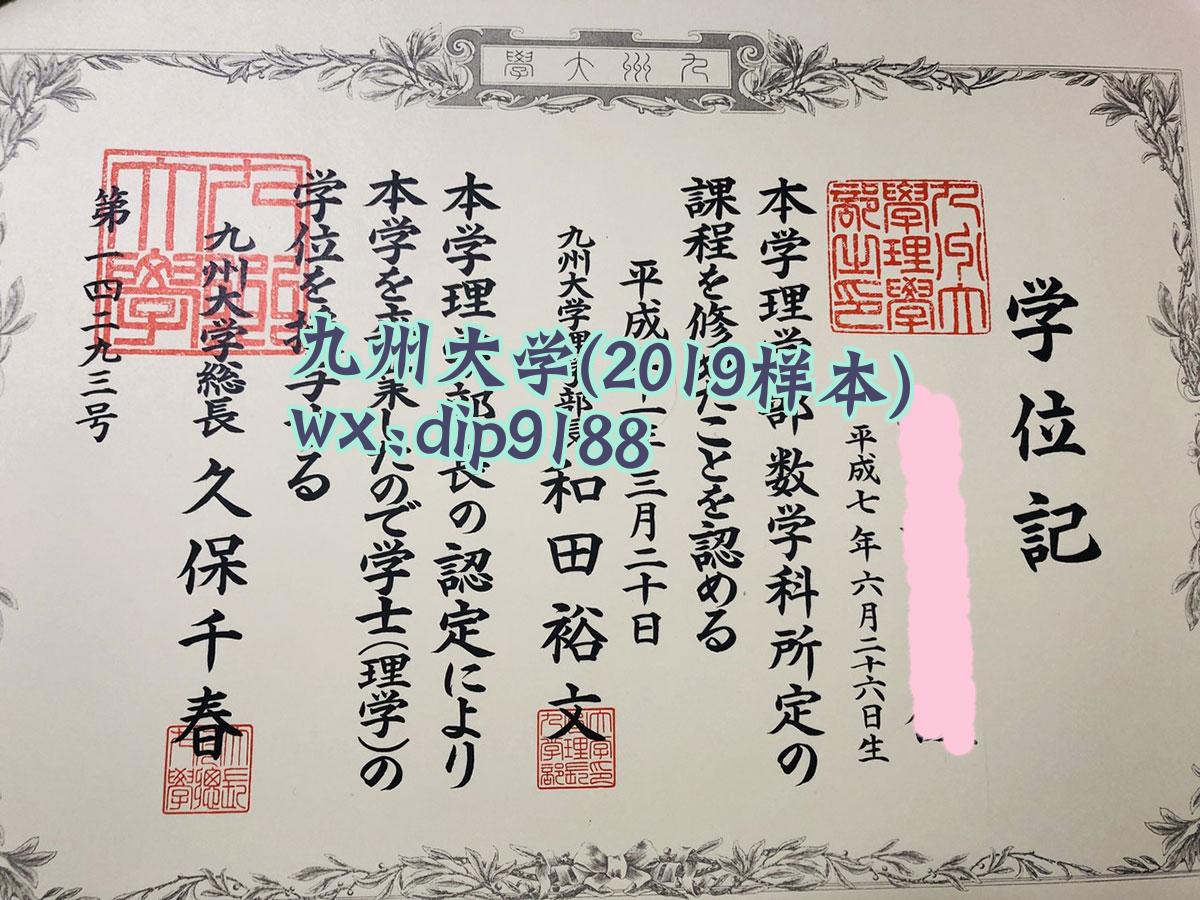 九州大學
学位記
平成七年六月二十六日生
九州大學理學部之印
本学理学部数学科所定の
課程を修めたことを認める
平成 三月二十日
九州大学理 部長 和田裕文
本学理 部長の認定により
本学を 業したので学士(理学)の
学位を授 る
九州大学総長 久保千春
第一四二九三号
九州大學
九州大学(2019样本)
wx:dip9188